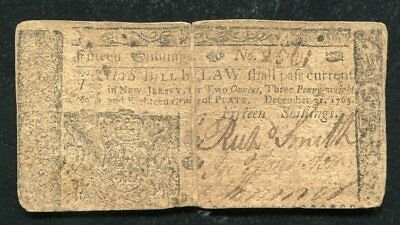 Fifteen Shillings. No. 2561
THIS BILL by LAW shall pass current
in NEW-JERSEY, for Two Ounces, Three Penny-weight
and Eighteen Grains of PLATE. December 31, 1763.
Fifteen Shillings.
Richd Smith